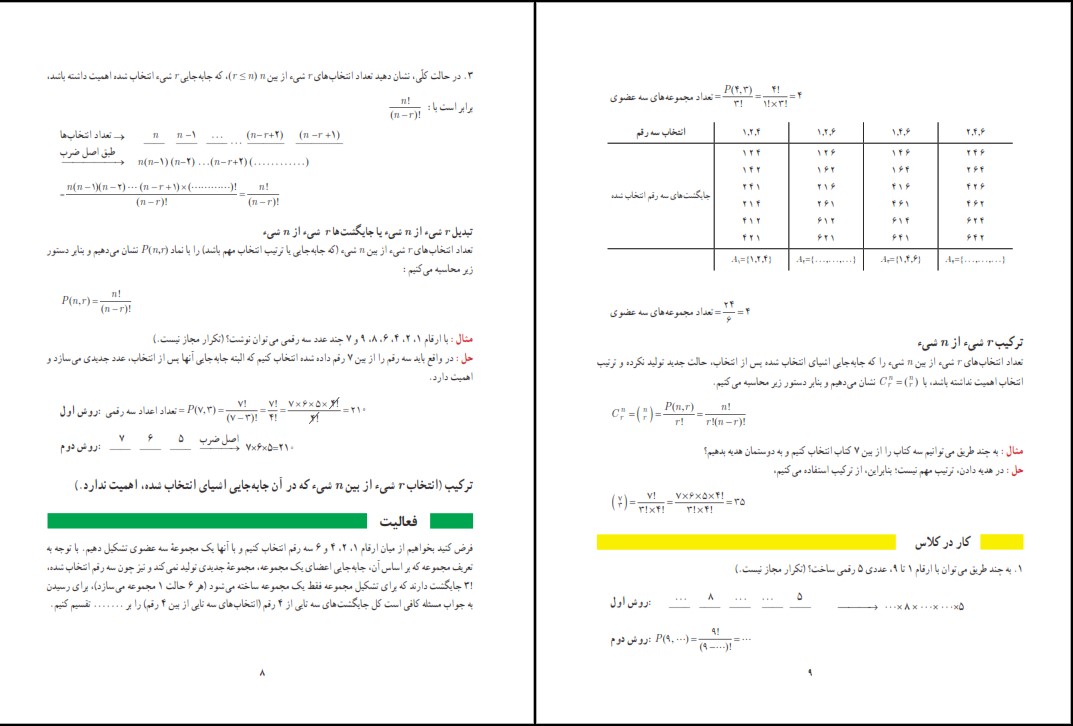 ۳. در حالت کلّی، نشان دهید تعداد انتخاب‌های r شیء از بین n (r ≤ n)، که جابه‌جایی r شیء انتخاب شده اهمیت داشته باشد،
برابر است با : n!/(n−r)!
تعداد انتخاب‌ها → n n−۱ ... ... (n−r+۲) (n−r+۱)
طبق اصل ضرب → n(n−۱) (n−۲) ...(n−r+۲) (............)
= n(n−۱)(n−۲) ⋯ (n−r+۱)×(⋯⋯⋯⋯)!/(n−r)! = n!/(n−r)!
تبدیل r شیء از n شیء یا جایگشت‌ها r شیء از n شیء
تعداد انتخاب‌های r شیء از بین n شیء (که جابه‌جایی یا ترتیب انتخاب مهم باشد) را با نماد P(n,r) نشان می‌دهیم و بنابر دستور
زیر محاسبه می‌کنیم :
P(n,r) = n!/(n−r)!
مثال : با ارقام ۱، ۲، ۴، ۶، ۸، ۹ و ۷ چند عدد سه رقمی می‌توان نوشت؟ (تکرار مجاز نیست.)
حل : در واقع باید سه رقم را از بین ۷ رقم داده شده انتخاب کنیم که البته جابه‌جایی آنها پس از انتخاب، عدد جدیدی می‌سازد و
اهمیت دارد.
روش اول: تعداد اعداد سه رقمی = P(۷,۳) = ۷!/(۷−۳)! = ۷!/۴! = ۷×۶×۵×۴!/۴! = ۲۱۰
روش دوم: ۷ ۶ ۵ اصل ضرب → ۷×۶×۵=۲۱۰
ترکیب (انتخاب r شیء از بین n شیء که در آن جابه‌جایی اشیای انتخاب شده، اهمیت ندارد.)
فعالیت
فرض کنید بخواهیم از میان ارقام ۱، ۲، ۴ و ۶ سه رقم انتخاب کنیم و با آنها یک مجموعهٔ سه عضوی تشکیل دهیم. با توجه به
تعریف مجموعه که بر اساس آن، جابه‌جایی اعضای یک مجموعه، مجموعهٔ جدیدی تولید نمی‌کند و نیز چون سه رقم انتخاب شده،
۳! جایگشت دارند که برای تشکیل مجموعه فقط یک مجموعه ساخته می‌شود (هر ۶ حالت ۱ مجموعه می‌سازد)، برای رسیدن
به جواب مسئله کافی است کل جایگشت‌های سه تایی از ۴ رقم (انتخاب‌های سه تایی از بین ۴ رقم) را بر ....... تقسیم کنیم.
۸
تعداد مجموعه‌های سه عضوی = P(۴,۳)/۳! = ۴!/۱!×۳! = ۴
انتخاب سه رقم ۱,۲,۴ ۱,۲,۶ ۱,۴,۶ ۲,۴,۶
۱۲۴ ۱۲۶ ۱۴۶ ۲۴۶
۱۴۲ ۱۶۲ ۱۶۴ ۲۶۴
۲۴۱ ۲۱۶ ۴۱۶ ۴۲۶
جایگشت‌های سه رقم انتخاب شده ۲۱۴ ۲۶۱ ۴۶۱ ۴۶۲
۴۱۲ ۶۱۲ ۶۱۴ ۶۲۴
۴۲۱ ۶۲۱ ۶۴۱ ۶۴۲
A₁={۱,۲,۴} A₂={...,...,...} A₃={۱,۴,۶} A₄={...,...,...}
تعداد مجموعه‌های سه عضوی = ۲۴/۶ = ۴
ترکیب r شیء از n شیء
تعداد انتخاب‌های r شیء از بین n شیء را که جابه‌جایی اشیای انتخاب شده پس از انتخاب، حالت جدید تولید نکرده و ترتیب
انتخاب اهمیت نداشته باشد، با C_r^n = (n r) نشان می‌دهیم و بنابر دستور زیر محاسبه می‌کنیم.
C_r^n = (n r) = P(n,r)/r! = n!/r!(n−r)!
مثال : به چند طریق می‌توانیم سه کتاب را از بین ۷ کتاب انتخاب کنیم و به دوستمان هدیه بدهیم؟
حل : در هدیه دادن، ترتیب مهم نیست؛ بنابراین، از ترکیب استفاده می‌کنیم،
(۷ ۳) = ۷!/۳!×۴! = ۷×۶×۵×۴!/۳!×۴! = ۳۵
کار در کلاس
۱. به چند طریق می‌توان با ارقام ۱ تا ۹، عددی ۵ رقمی ساخت؟ (تکرار مجاز نیست.)
روش اول: ... ۸ ... ... ۵ → ⋯×۸×⋯×⋯×۵
روش دوم: P(۹,⋯) = ۹!/(۹−⋯)! = ⋯
۹